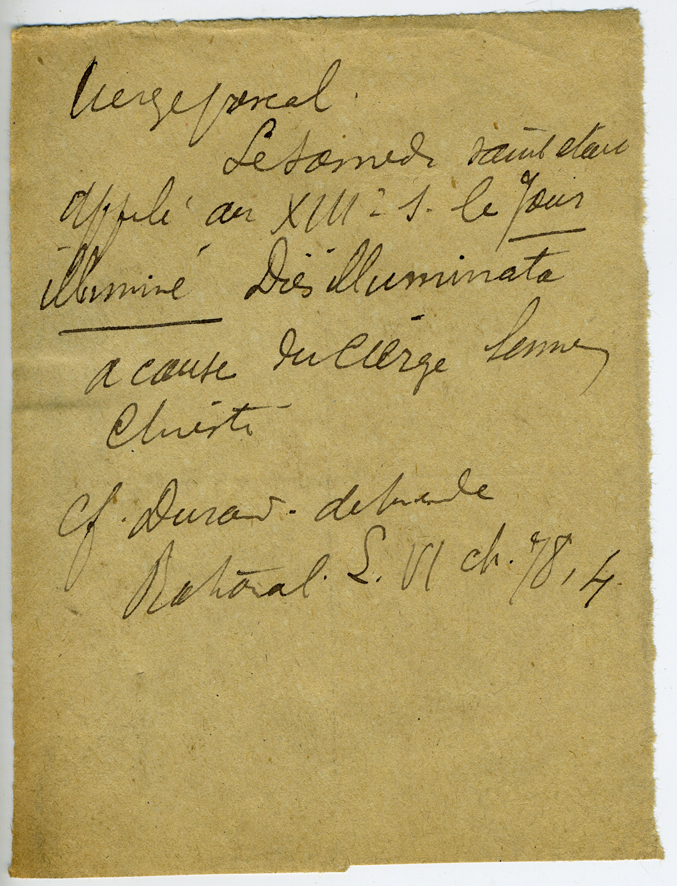 Cierge pascal.
Le samedi saint était
appelé au XIIIe s. le Jour
illuminé Dies illuminata
a cause du cierge
Christi
Cf. Durand. de Mende
Rational. L. VI ch. 78, 4.